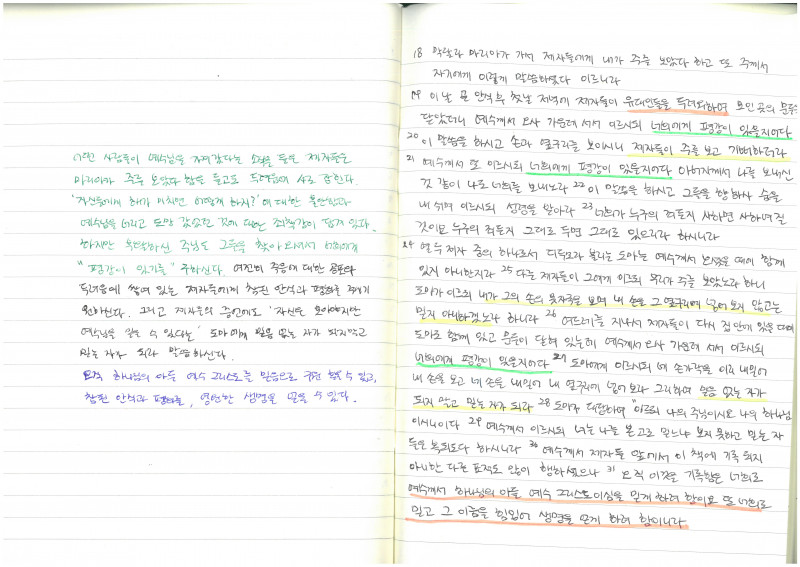 어떤 사람들이 예수님을 가져갔다는 소식을 들은 제자들은
마리아가 주를 보았다 함을 듣고도 두려움에 사로 잡힌다.
'자신들에게 해가 미치면 어떻게 하지?'에 대한 불안함과
예수님을 버리고 도망 갔었던 것에 대한 죄책감이 담겨 있다.
하지만 부활하신 주님은 그들을 찾아오셔서 너희에게
"평강이 있기를" 구하신다. 여전히 죽음에 대한 공포와
두려움에 쌓여 있는 제자들에게 참된 안식과 평화를 주시기
원하신다. 그리고 제자들의 증언에도 '자신은 보아야지만
예수님을 믿을 수 있다'는 도마에게 믿음 없는 자가 되지말고
믿는 자가 되라 말씀하신다.
오직 하나님의 아들 예수 그리스도를 믿음으로 구원 받을 수 있고,
참된 안식과 평화를, 영원한 생명을 얻을 수 있다.
18 막달라 마리아가 가서 제자들에게 내가 주를 보았다 하고 또 주께서
자기에게 이렇게 말씀하셨다 이르니라
19 이 날 곧 안식 후 첫날 저녁에 제자들이 유대인들을 두려워하여 모인 곳의 문들을
닫았더니 예수께서 오사 가운데 서서 이르시되 너희에게 평강이 있을지어다
20 이 말씀을 하시고 손과 옆구리를 보이시니 제자들이 주를 보고 기뻐하더라
21 예수께서 또 이르시되 너희에게 평강이 있을지어다 아버지께서 나를 보내신
것 같이 나도 너희를 보내노라 22 이 말씀을 하시고 그들을 향하사 숨을
내 쉬며 이르시되 성령을 받아라 23 너희가 누구의 죄든지 사하면 사하여질
것이요 누구의 죄든지 그대로 두면 그대로 있으리라 하시니라
24 열두 제자 중의 하나로서 디두모라 불리는 도마는 예수께서 오셨을 때에 함께
있지 아니한지라 25 다른 제자들이 그에게 이르되 우리가 주를 보았노라 하니
도마가 이르되 내가 그의 손의 못자국을 보며 내 손을 그 옆구리에 넣어 보지 않고는
믿지 아니하겠노라 하니라 26 여드레를 지나서 제자들이 다시 집 안에 있을 때에
도마도 함께 있고 문들이 닫혀 있는데 예수께서 오사 가운데 서서 이르시되
너희에게 평강이 있을지어다 27 도마에게 이르시되 네 손가락을 이리 내밀어
내 손을 보고 네 손을 내밀어 내 옆구리에 넣어 보라 그리하여 믿음 없는 자가
되지 말고 믿는 자가 되라 28 도마가 대답하여 "이르되 나의 주님이시요 나의 하나님
이시니이다 29 예수께서 이르시되 너는 나를 본 고로 믿느냐 보지 못하고 믿는 자
들은 복되도다 하시니라 30 예수께서 제자들 앞에서 이 책에 기록 되지
아니한 다른 표적도 많이 행하셨으나 31 오직 이것을 기록함은 너희로
예수께서 하나님의 아들 예수 그리스도이심을 믿게 하려 함이요 또 너희로
믿고 그 이름을 힘입어 생명을 얻게 하려 함이니라